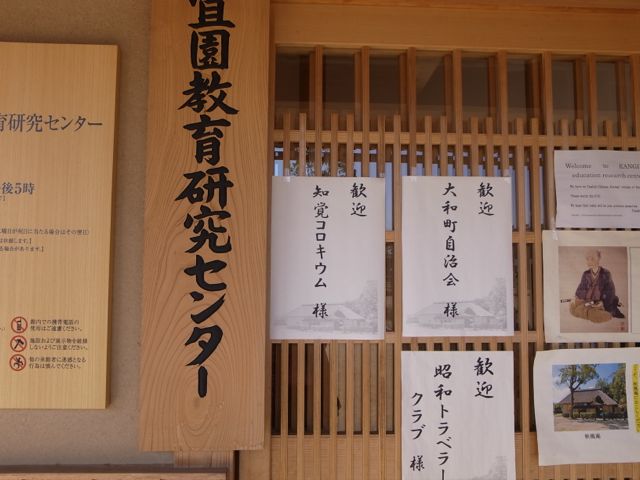 育研究センター
後5時
館内での携帯電話の
使用はご遠慮ください。
施設および展示物を破損
しないようご注意ください。
他の来館者に迷惑となる
行為は慎んでください。
宜園教育研究センター
歓迎
知覚コロキウム 様
歓迎
大和町自治会 様
歓迎
昭和トラベラー
クラブ 様
Welcome to KANG
education research cent
秋風庵